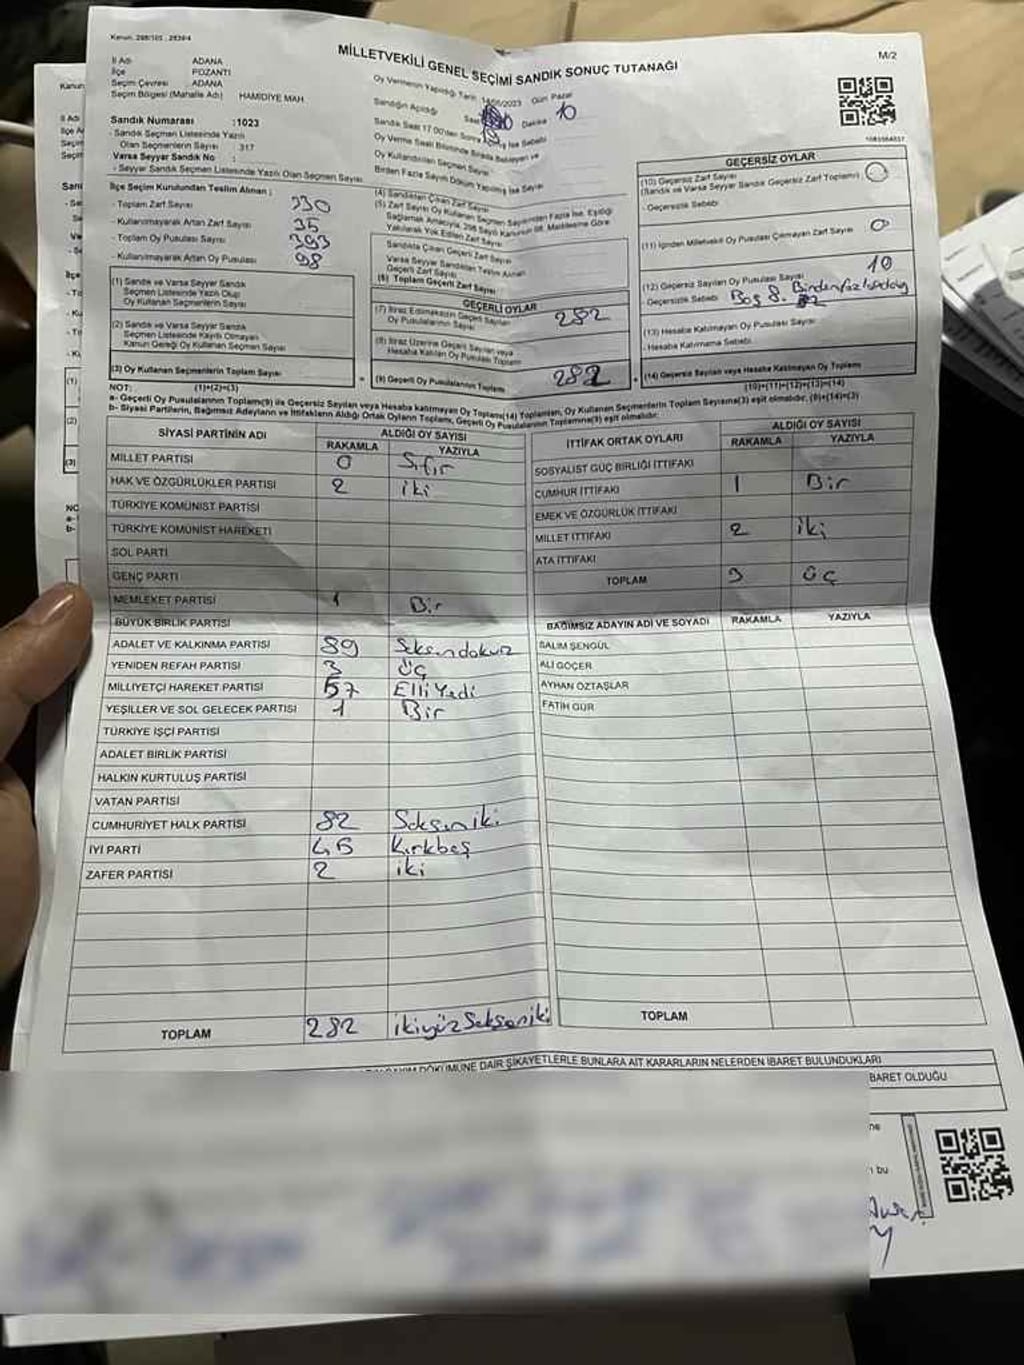 Kanun: 298/105 , 2839/4
MİLLETVEKİLİ GENEL SEÇİMİ SANDIK SONUÇ TUTANAĞI
M/2
İl Adı ADANA
İlçe POZANTI
Seçim Çevresi ADANA
Seçim Bölgesi (Mahalle Adı) HAMİDİYE MAH.
Sandık Numarası :1023
- Sandık Seçmen Listesinde Yazılı
Olan Seçmenlerin Sayısı 317
Varsa Seyyar Sandık No :
- Seyyar Sandık Seçmen Listesinde Yazılı Olan Seçmen Sayısı
Oy Vermenin Yapıldığı Tarih 14/05/2023 Gün Pazar
Sandığın Açıldığı Saat Dakika 10
İlçe Seçim Kurulundan Teslim Alınan ;
- Toplam Zarf Sayısı 330
- Kullanılmayarak Artan Zarf Sayısı 35
- Toplam Oy Pusulası Sayısı 393
- Kullanılmayarak Artan Oy Pusulası 98
(1) Sandık ve Varsa Seyyar Sandık
Seçmen Listesinde Yazılı Olup
Oy Kullanan Seçmenlerin Sayısı
(2) Sandık ve Varsa Seyyar Sandık
Seçmen Listesinde Kayıtlı Olmayan
Kanun Gereği Oy Kullanan Seçmen Sayısı
(3) Oy Kullanan Seçmenlerin Toplam Sayısı
(1)+(2)=(3)
(4) Sandıktan Çıkan Zarf Sayısı
(5) Zarf Sayısı Oy Kullanan Seçmen Sayısından Fazla İse, Eşitliği
Sağlamak Amacıyla, 298 Sayılı Kanunun 98. Maddesine Göre
Yakılarak Yok Edilen Zarf Sayısı
Sandıkta Çıkan Geçerli Zarf Sayısı
Varsa Seyyar Sandıktan Teslim Alınan
Geçerli Zarf Sayısı
(6) Toplam Geçerli Zarf Sayısı
GEÇERLİ OYLAR
(7) İtiraz Edilmeksizin Geçerli Sayılan
Oy Pusulalarının Sayısı 282
(8) İtiraz Üzerine Geçerli Sayılan veya
Hesaba Katılan Oy Pusulası Toplamı
(9) Geçerli Oy Pusulalarının Toplamı 282
GEÇERSİZ OYLAR
(10) Geçersiz Zarf Sayısı
(Sandık ve Varsa Seyyar Sandık Geçersiz Zarf Toplamı) 0
- Geçersizlik Sebebi
(11) İçinden Milletvekili Oy Pusulası Çıkmayan Zarf Sayısı 0
(12) Geçersiz Sayılan Oy Pusulası Sayısı 10
- Geçersizlik Sebebi Boş 8.
(13) Hesaba Katılmayan Oy Pusulası Sayısı
- Hesaba Katılmama Sebebi
(14) Geçersiz Sayılan veya Hesaba Katılmayan Oy Toplamı
(10)+(11)+(12)+(13)=(14)
NOT:
a- Geçerli Oy Pusulalarının Toplamı(9) ile Geçersiz Sayılan veya Hesaba katılmayan Oy Toplamı(14) Toplamları, Oy Kullanan Seçmenlerin Toplam Sayısına(3) eşit olmalıdır. (9)+(14)=(3)
b- Siyasi Partilerin, Bağımsız Adayların ve İttifakların Aldığı Ortak Oyların Toplamı, Geçerli Oy Pusulalarının Toplamına(9) eşit olmalıdır.
SİYASİ PARTİNİN ADI ALDIĞI OY SAYISI
RAKAMLA YAZIYLA
MİLLET PARTİSİ 0 Sıfır
HAK VE ÖZGÜRLÜKLER PARTİSİ 2 iki
TÜRKİYE KOMÜNİST PARTİSİ
TÜRKİYE KOMÜNİST HAREKETİ
SOL PARTİ
GENÇ PARTİ
MEMLEKET PARTİSİ 1 Bir
BÜYÜK BİRLİK PARTİSİ
ADALET VE KALKINMA PARTİSİ 89 Seksendokuz
YENİDEN REFAH PARTİSİ 3 Üç
MİLLİYETÇİ HAREKET PARTİSİ 57 Elli Yedi
YEŞİLLER VE SOL GELECEK PARTİSİ 1 Bir
TÜRKİYE İŞÇİ PARTİSİ
ADALET BİRLİK PARTİSİ
HALKIN KURTULUŞ PARTİSİ
VATAN PARTİSİ
CUMHURİYET HALK PARTİSİ 82 Seksen iki
İYİ PARTİ 45 Kırkbeş
ZAFER PARTİSİ 2 iki
TOPLAM 282 ikiyüz Seksen iki
İTTİFAK ORTAK OYLARI ALDIĞI OY SAYISI
RAKAMLA YAZIYLA
SOSYALİST GÜÇ BİRLİĞİ İTTİFAKI
CUMHUR İTTİFAKI 1 Bir
EMEK VE ÖZGÜRLÜK İTTİFAKI
MİLLET İTTİFAKI 2 iki
ATA İTTİFAKI
TOPLAM 3 üç
BAĞIMSIZ ADAYIN ADI VE SOYADI RAKAMLA YAZIYLA
SALİM ŞENGÜL
ALİ GÖÇER
AYHAN ÖZTAŞLAR
FATİH GÜR
TOPLAM
DÖKÜMÜNE DAİR ŞİKAYETLERLE BUNLARA AİT KARARLARIN NELERDEN İBARET BULUNDUKLARI
BARET OLDUĞU